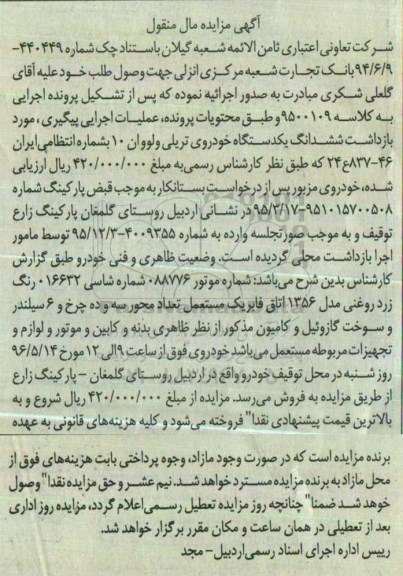 آگهی مزایده مال منقول
شرکت تعاونی اعتباری ثامن الائمه شعبه گیلان باستناد چک شماره ۴۴۰۴۴۹-
۹۴/۶/۹ بانک تجارت شعبه مرکزی انزلی جهت وصول طلب خود علیه آقای
گلعلی شکری مبادرت به صدور اجرائیه نموده که پس از تشکیل پرونده اجرایی
به کلاسه ۹۵۰۰۱۰۹ و طبق محتویات پرونده، عملیات اجرایی پیگیری، مورد
بازداشت ششدانگ یکدستگاه خودروی تریلی ولوو ان ۱۰ بشماره انتظامی ایران
۴۶-۸۳۷ع۲۴ که طبق نظر کارشناس رسمی به مبلغ ۴۲۰/۰۰۰/۰۰۰ ریال ارزیابی
شده، خودروی مزبور پس از درخواست بستانکار به موجب قبض پارکینگ شماره
۹۵۱۰۱۵۷۰۰۵۰۸-۹۵/۳/۱۷ در نشانی اردبیل روستای گلمغان پارکینگ زارع
توقیف و به موجب صورتجلسه وارده به شماره ۴۰۰۹۳۵۵-۹۵/۱۲/۳ توسط مامور
اجرا بازداشت محلی گردیده است. وضعیت ظاهری و فنی خودرو طبق گزارش
کارشناس بدین شرح می‌باشد: شماره موتور ۰۸۸۷۷۶ شماره شاسی ۰۱۶۶۳۲ رنگ
زرد روغنی مدل ۱۳۵۶ اتاق فابریک مستعمل تعداد محور سه و ده چرخ و ۶ سیلندر
و سوخت گازوئیل و کامیون مذکور از نظر ظاهری بدنه و کابین و موتور و لوازم و
تجهیزات مربوطه مستعمل می‌باشد خودروی فوق از ساعت ۹ الی ۱۲ مورخ ۹۶/۵/۱۴
روز شنبه در محل توقیف خودرو واقع در اردبیل روستای گلمغان – پارکینگ زارع
از طریق مزایده به فروش می‌رسد. مزایده از مبلغ ۴۲۰/۰۰۰/۰۰۰ ریال شروع و به
بالاترین قیمت پیشنهادی نقدا" فروخته می‌شود و کلیه هزینه‌های قانونی به عهده
برنده مزایده است که در صورت وجود مازاد، وجوه پرداختی بابت هزینه‌های فوق از
محل مازاد به برنده مزایده مسترد خواهد شد. نیم عشر و حق مزایده نقدا" وصول
خوهد شد ضمنا" چنانچه روز مزایده تعطیل رسمی اعلام گردد، مزایده روز اداری
بعد از تعطیلی در همان ساعت و مکان مقرر برگزار خواهد شد.
رییس اداره اجرای اسناد رسمی اردبیل- مجد